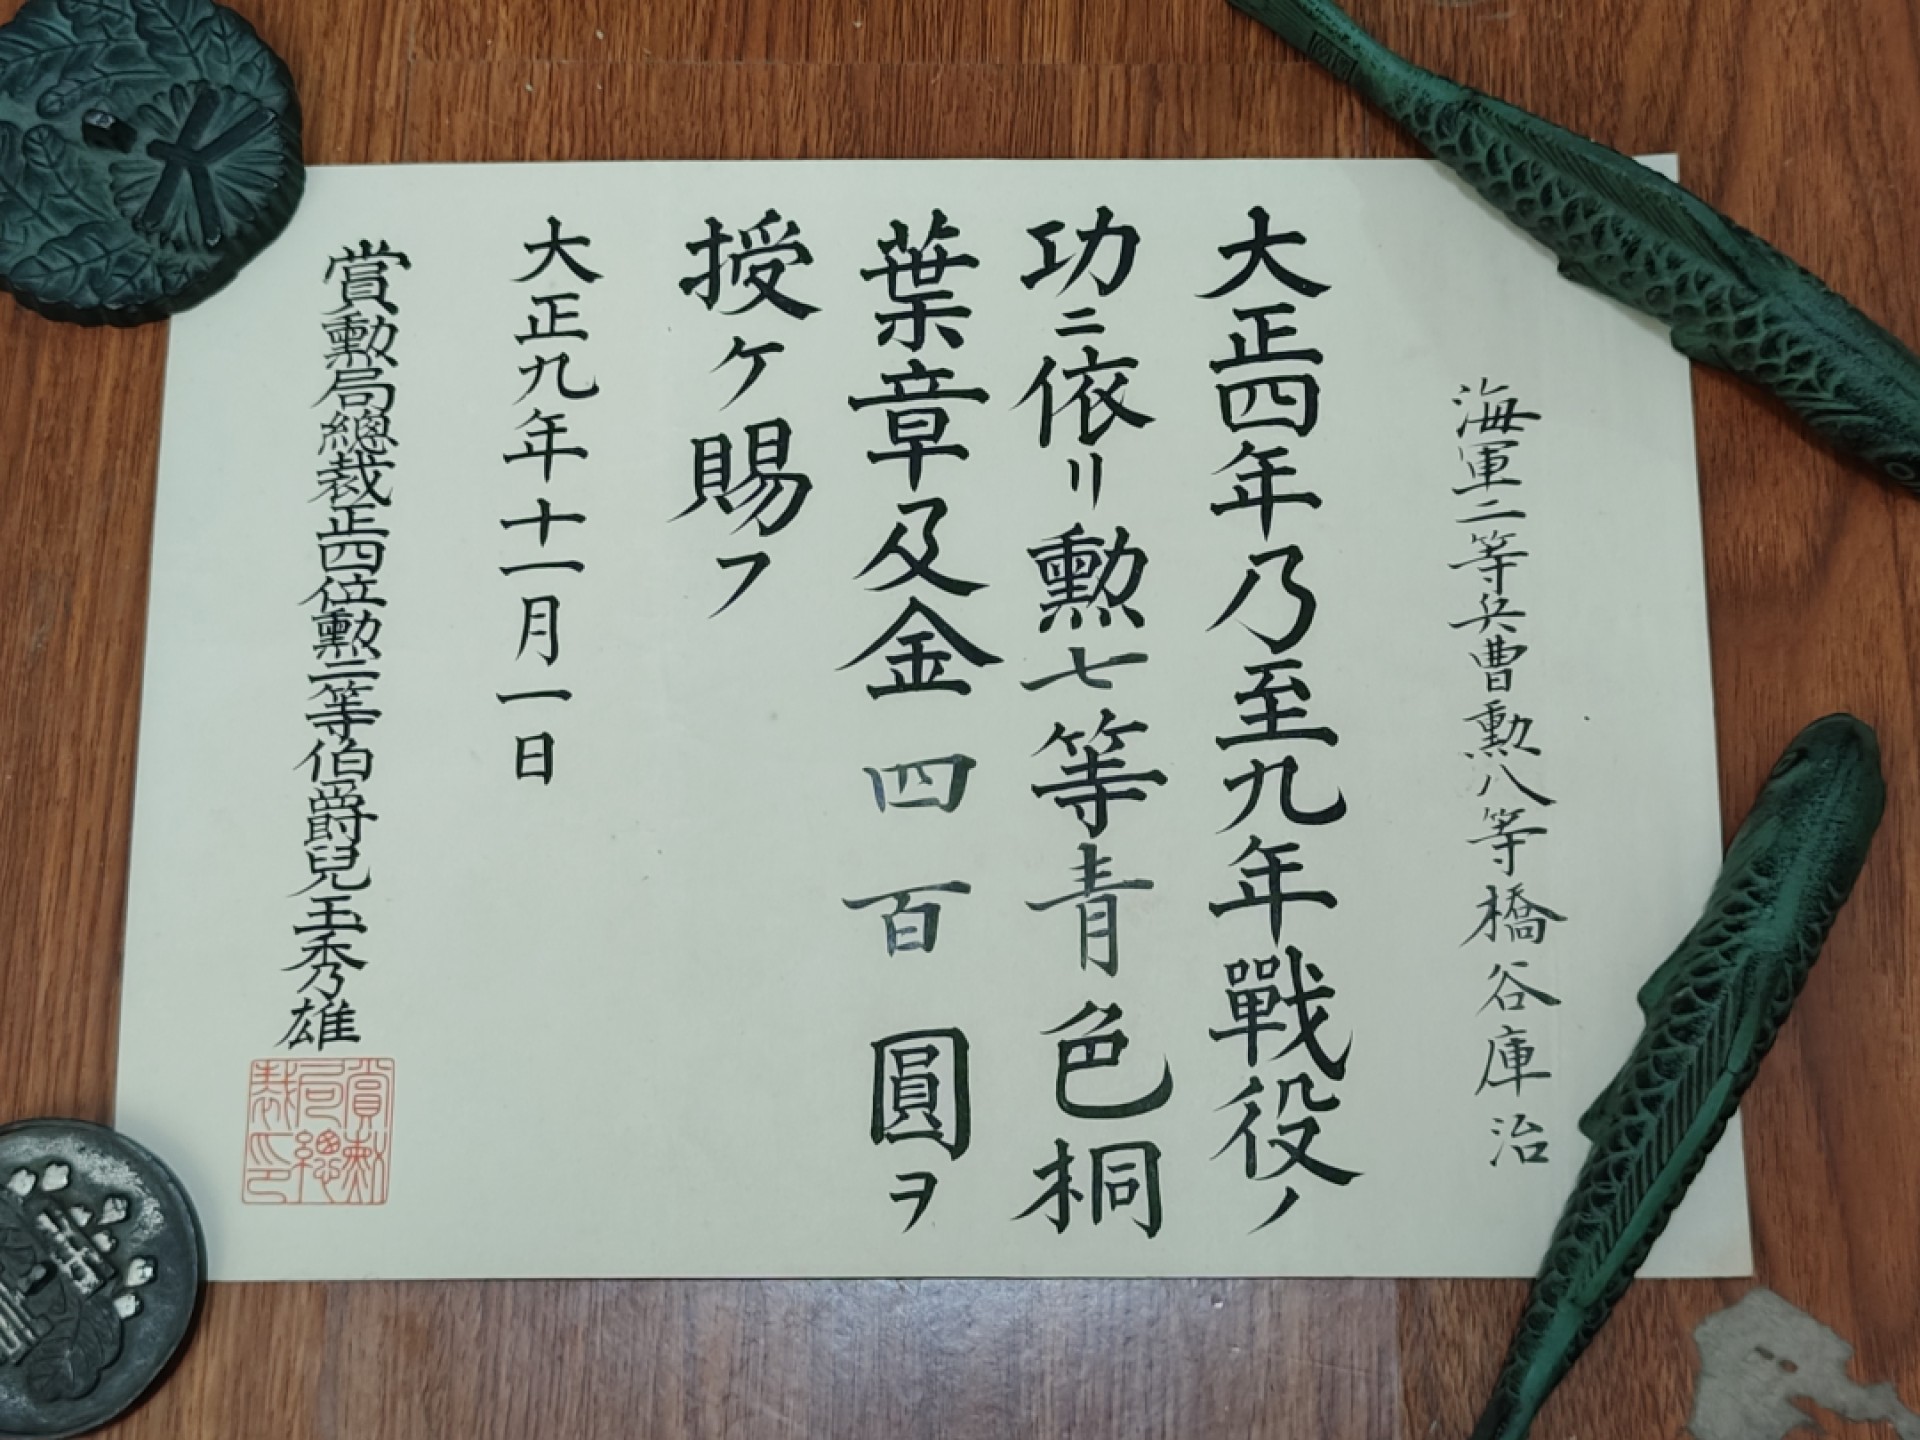 海軍二等兵曹勲八等橋谷庫治
大正四年乃至九年戰役ノ
功ニ依リ勲七等青色桐
葉章及金四百圓ヲ
授ケ賜フ
大正九年十一月一日
賞勲局總裁正四位勲二等伯爵兒玉秀雄
賞勲
局總
裁印